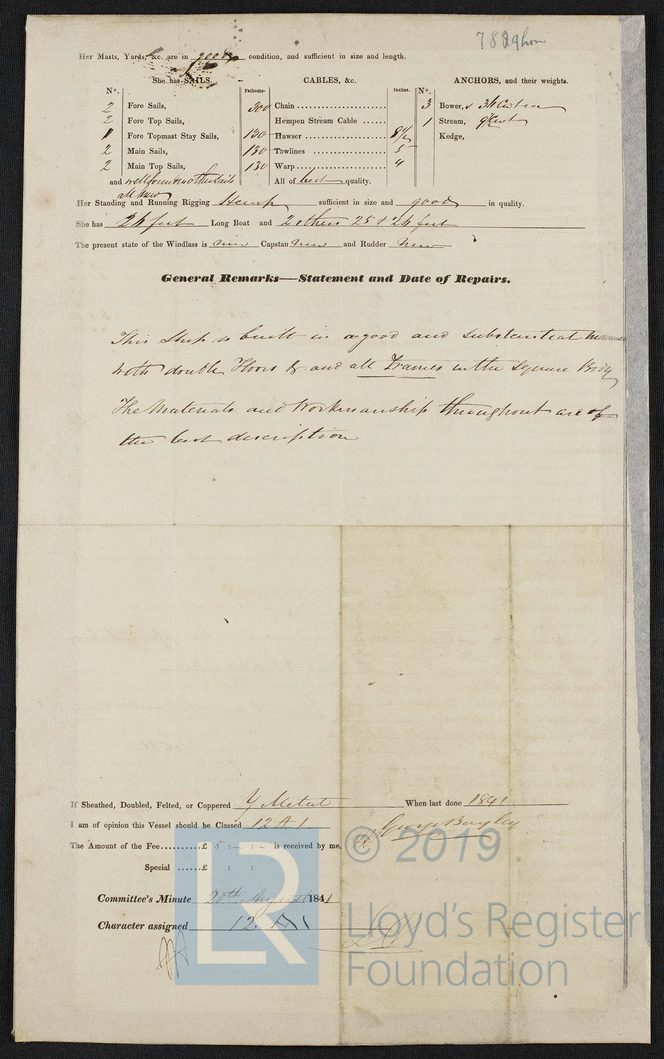 7829 hon
Her Masts, Yards, &c. are in good condition, and sufficient in size and length.
She has SAILS. CABLES, &c. ANCHORS, and their weights.
N°. Fathoms. Inches. N°.
2 Fore Sails, 300 Chain 3 Bower,s
2 Fore Top Sails, Hempen Stream Cable 1 Stream,
1 Fore Topmast Stay Sails, 130 Hawser 8½ Kedge,
2 Main Sails, 130 Towlines 5
2 Main Top Sails, 130 Warp 4
and well found in other sails All of best quality.
all new
Her Standing and Running Rigging Hemp sufficient in size and good in quality.
She has 24 feet Long Boat and 2 others 25 & 24 feet
The present state of the Windlass is new Capstan New and Rudder New
General Remarks—Statement and Date of Repairs.
This Ship is built in a good and substantial manner
with double Floors & and all Frames in the Square Body
The Materials and Workmanship throughout are of
the best description
If Sheathed, Doubled, Felted, or Coppered Y Metal When last done 1841
I am of opinion this Vessel should be Classed 12 A 1 George Bayley
The Amount of the Fee.........£ 5 : - : - is received by me,
Special ......£ : :
Committee's Minute 20th August 1841
Character assigned 12 A 1
© 2019
LR
Lloyd's Register
Foundation